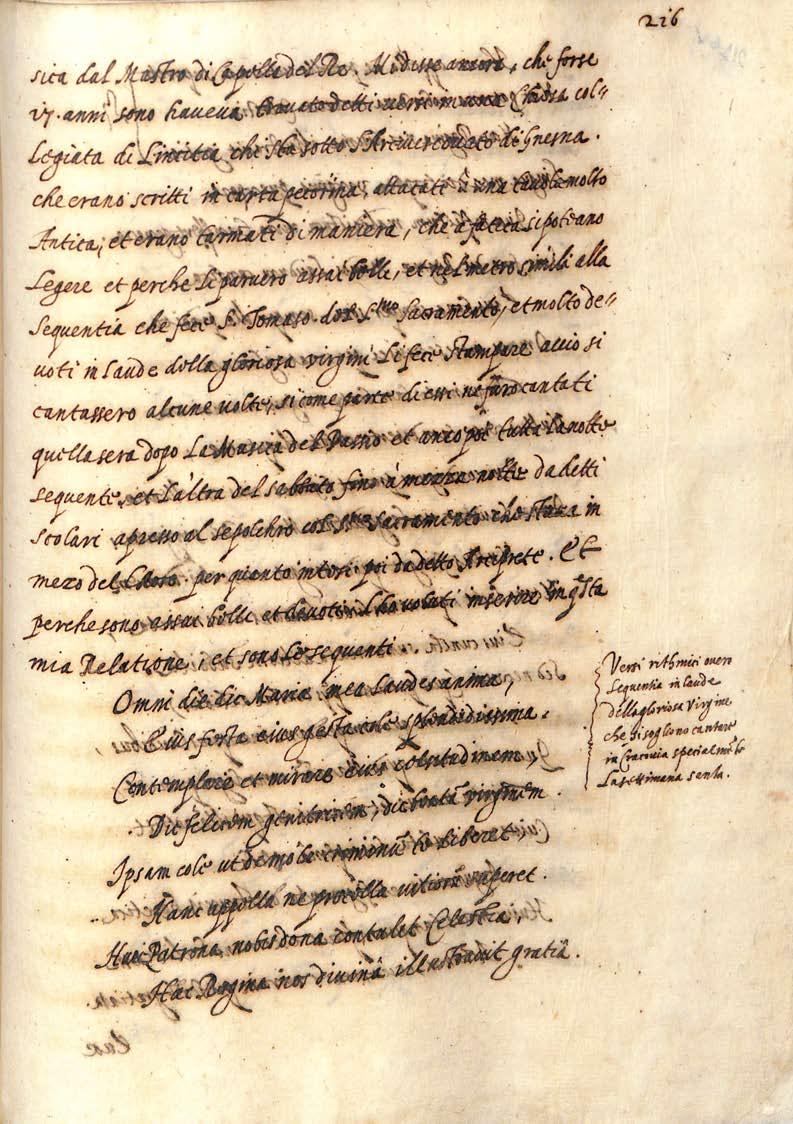 216
sica dal Mastro di Capella del Re. Mi disse ancora, che forse
vj. anni sono haveva trovato detti versi in una Chiesa col=
legiata di Lincitia che sta sotto l'Arcivescovato di Gnesna.
che erano scritti in carta pecorina, attacati à una tavola molto
Antica, et erano tarmati di maniera, che à fatica si poteano
legere et perche li parvero assai belli, et nel metro simili alla
sequentia che fece S. Tomaso del S.mo Sacramento, et molto de=
voti in laude della gloriosa virgini li fece stampare accio si
cantassero alcune volte, sicome parte di essi ne furo cantati
quella sera dopo la Musica del Passio et anco poi tutta la notte
sequente, et l'altra del sabbato fino à mezza notte da detti
scolari apresso al sepolchro col S.mo Sacramento che stava in
mezo del Choro. per quanto intesi poi da detto Arciprete. Et
perche sono assai belli et devoti li ho voluti inserire in q̃sta
mia Relatione, et sono le sequenti
Omni die dic Mariæ mea laudes anima,
Eius festa eius gesta cole splendidissima.
Contemplare et mirare eius celsitudinem
Dic felicem genitricem, dic beatā virginem.
Ipsam cole ut de mole criminū te liberet,
Hanc appella ne procella vitiorū superet.
Hæc Patrona nobis dona contulet Celestia,
Hæc Regina nos divinâ illustravit gratiâ.
Versi rithmici overo
sequentia in laude
della gloriosa Virgine
che si sogliono cantare
in Cracovia specialmẽte
la settimana santa.